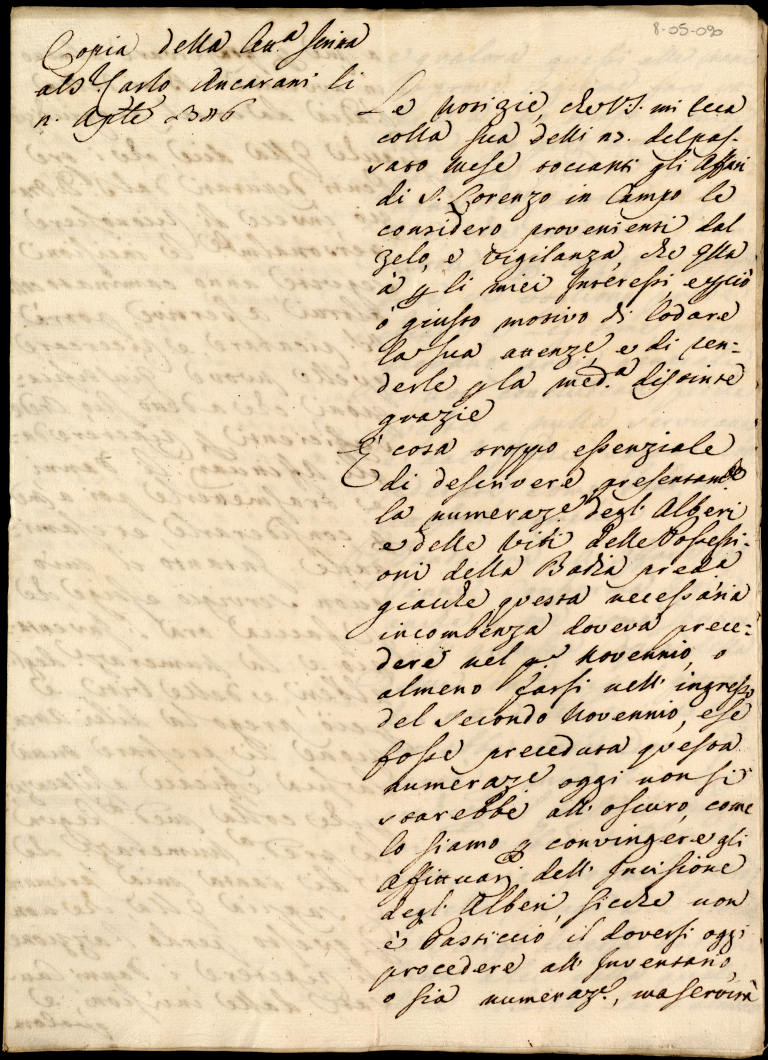 8-05-090
Copia della lett.a scritta
al S.r Carlo Ancarani li
n. Ag.to 1786
Le notizie, che V.S. mi reca
colla sua delli 23. del pas-
sato mese toccanti gli Affari
di S. Lorenzo in Campo le
considero provenienti dal
zelo, e vigilanza, che q̃lla
à p̃ li miei Interessi, e p̃ciò
ò giusto motivo di lodare
la sua attenz.e, e di ren-
derle p̃ la med.a distinte
grazie
È cosa troppo essenziale
di descrivere presentam.te
la numeraz.e degl'Alberi
e delle Viti delle Possessi-
oni della Badia
giacche questa necessaria
incombenza doveva prece-
dere nel p.o Novennio, o
almeno farsi nell'ingresso
del secondo Novennio, e se
fosse preceduta questa
numeraz.e oggi non si
starebbe all'oscuro, come
lo siamo p̃ convingere gli
affittuarj dell'Incisione
degl'Alberi, sicche non
è Pasticcio il doversi oggi
procedere all'Inventario,
o sia numeraz.e, ma servirà